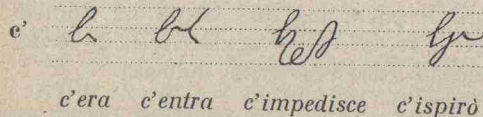 c'
c'era c'entra c'impedisce c'ispirò